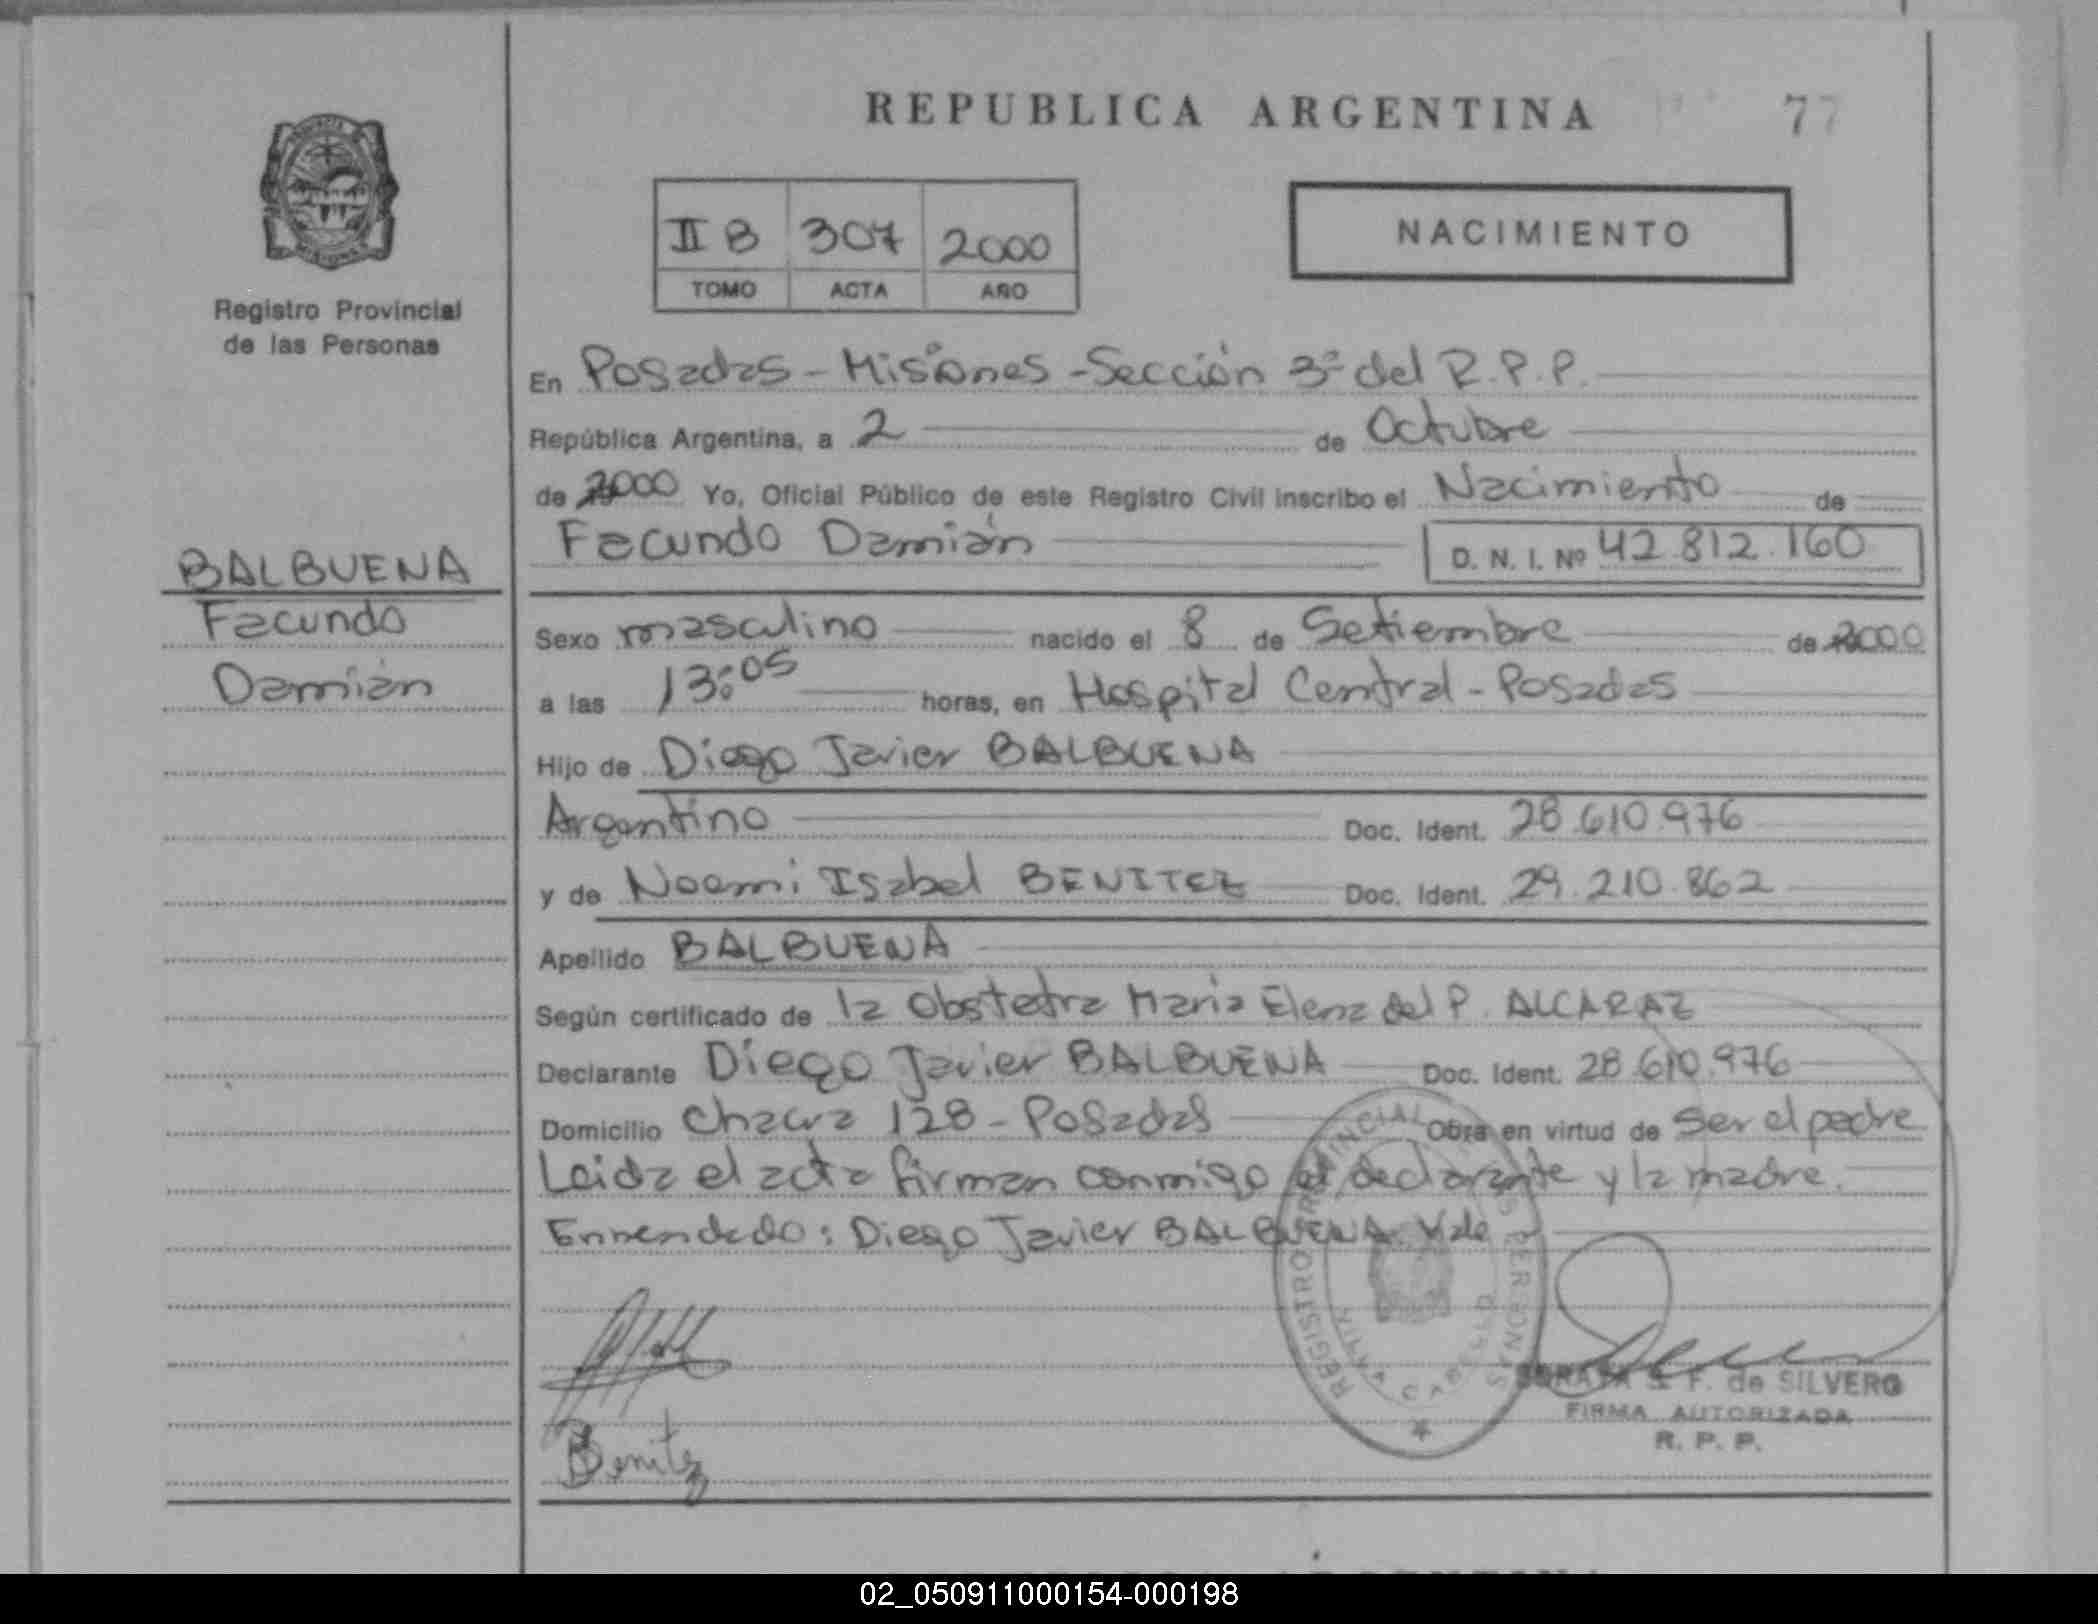 REPUBLICA ARGENTINA 77
Registro Provincial
de las Personas
II B 307 2000
TOMO ACTA AÑO
NACIMIENTO
En Posadas - Misiones - Sección 3ª del R.P.P.
República Argentina, a 2 de Octubre
de 2000 Yo, Oficial Público de este Registro Civil inscribo el Nacimiento de
Facundo Damián D. N. I. Nº 42.812.160
BALBUENA
Facundo
Damián
Sexo masculino nacido el 8 de Setiembre de 2000
a las 13:05 horas, en Hospital Central - Posadas
Hijo de Diego Javier BALBUENA
Argentino Doc. Ident. 28.610.976
y de Noemi Isabel BENITEZ Doc. Ident. 29.210.862
Apellido BALBUENA
Según certificado de la Obstetra Maria Elena del P. ALCARAZ
Declarante Diego Javier BALBUENA Doc. Ident. 28.610.976
Domicilio Chacra 128 - Posadas Obra en virtud de ser el padre
Leida el acta firman conmigo el declarante y la madre.
Enmendado: Diego Javier BALBUENA Vale
REGISTRO PROVINCIAL PERSONAS
Benitez
S. F. de SILVERO
FIRMA AUTORIZADA
R. P. P.
02_050911000154-000198